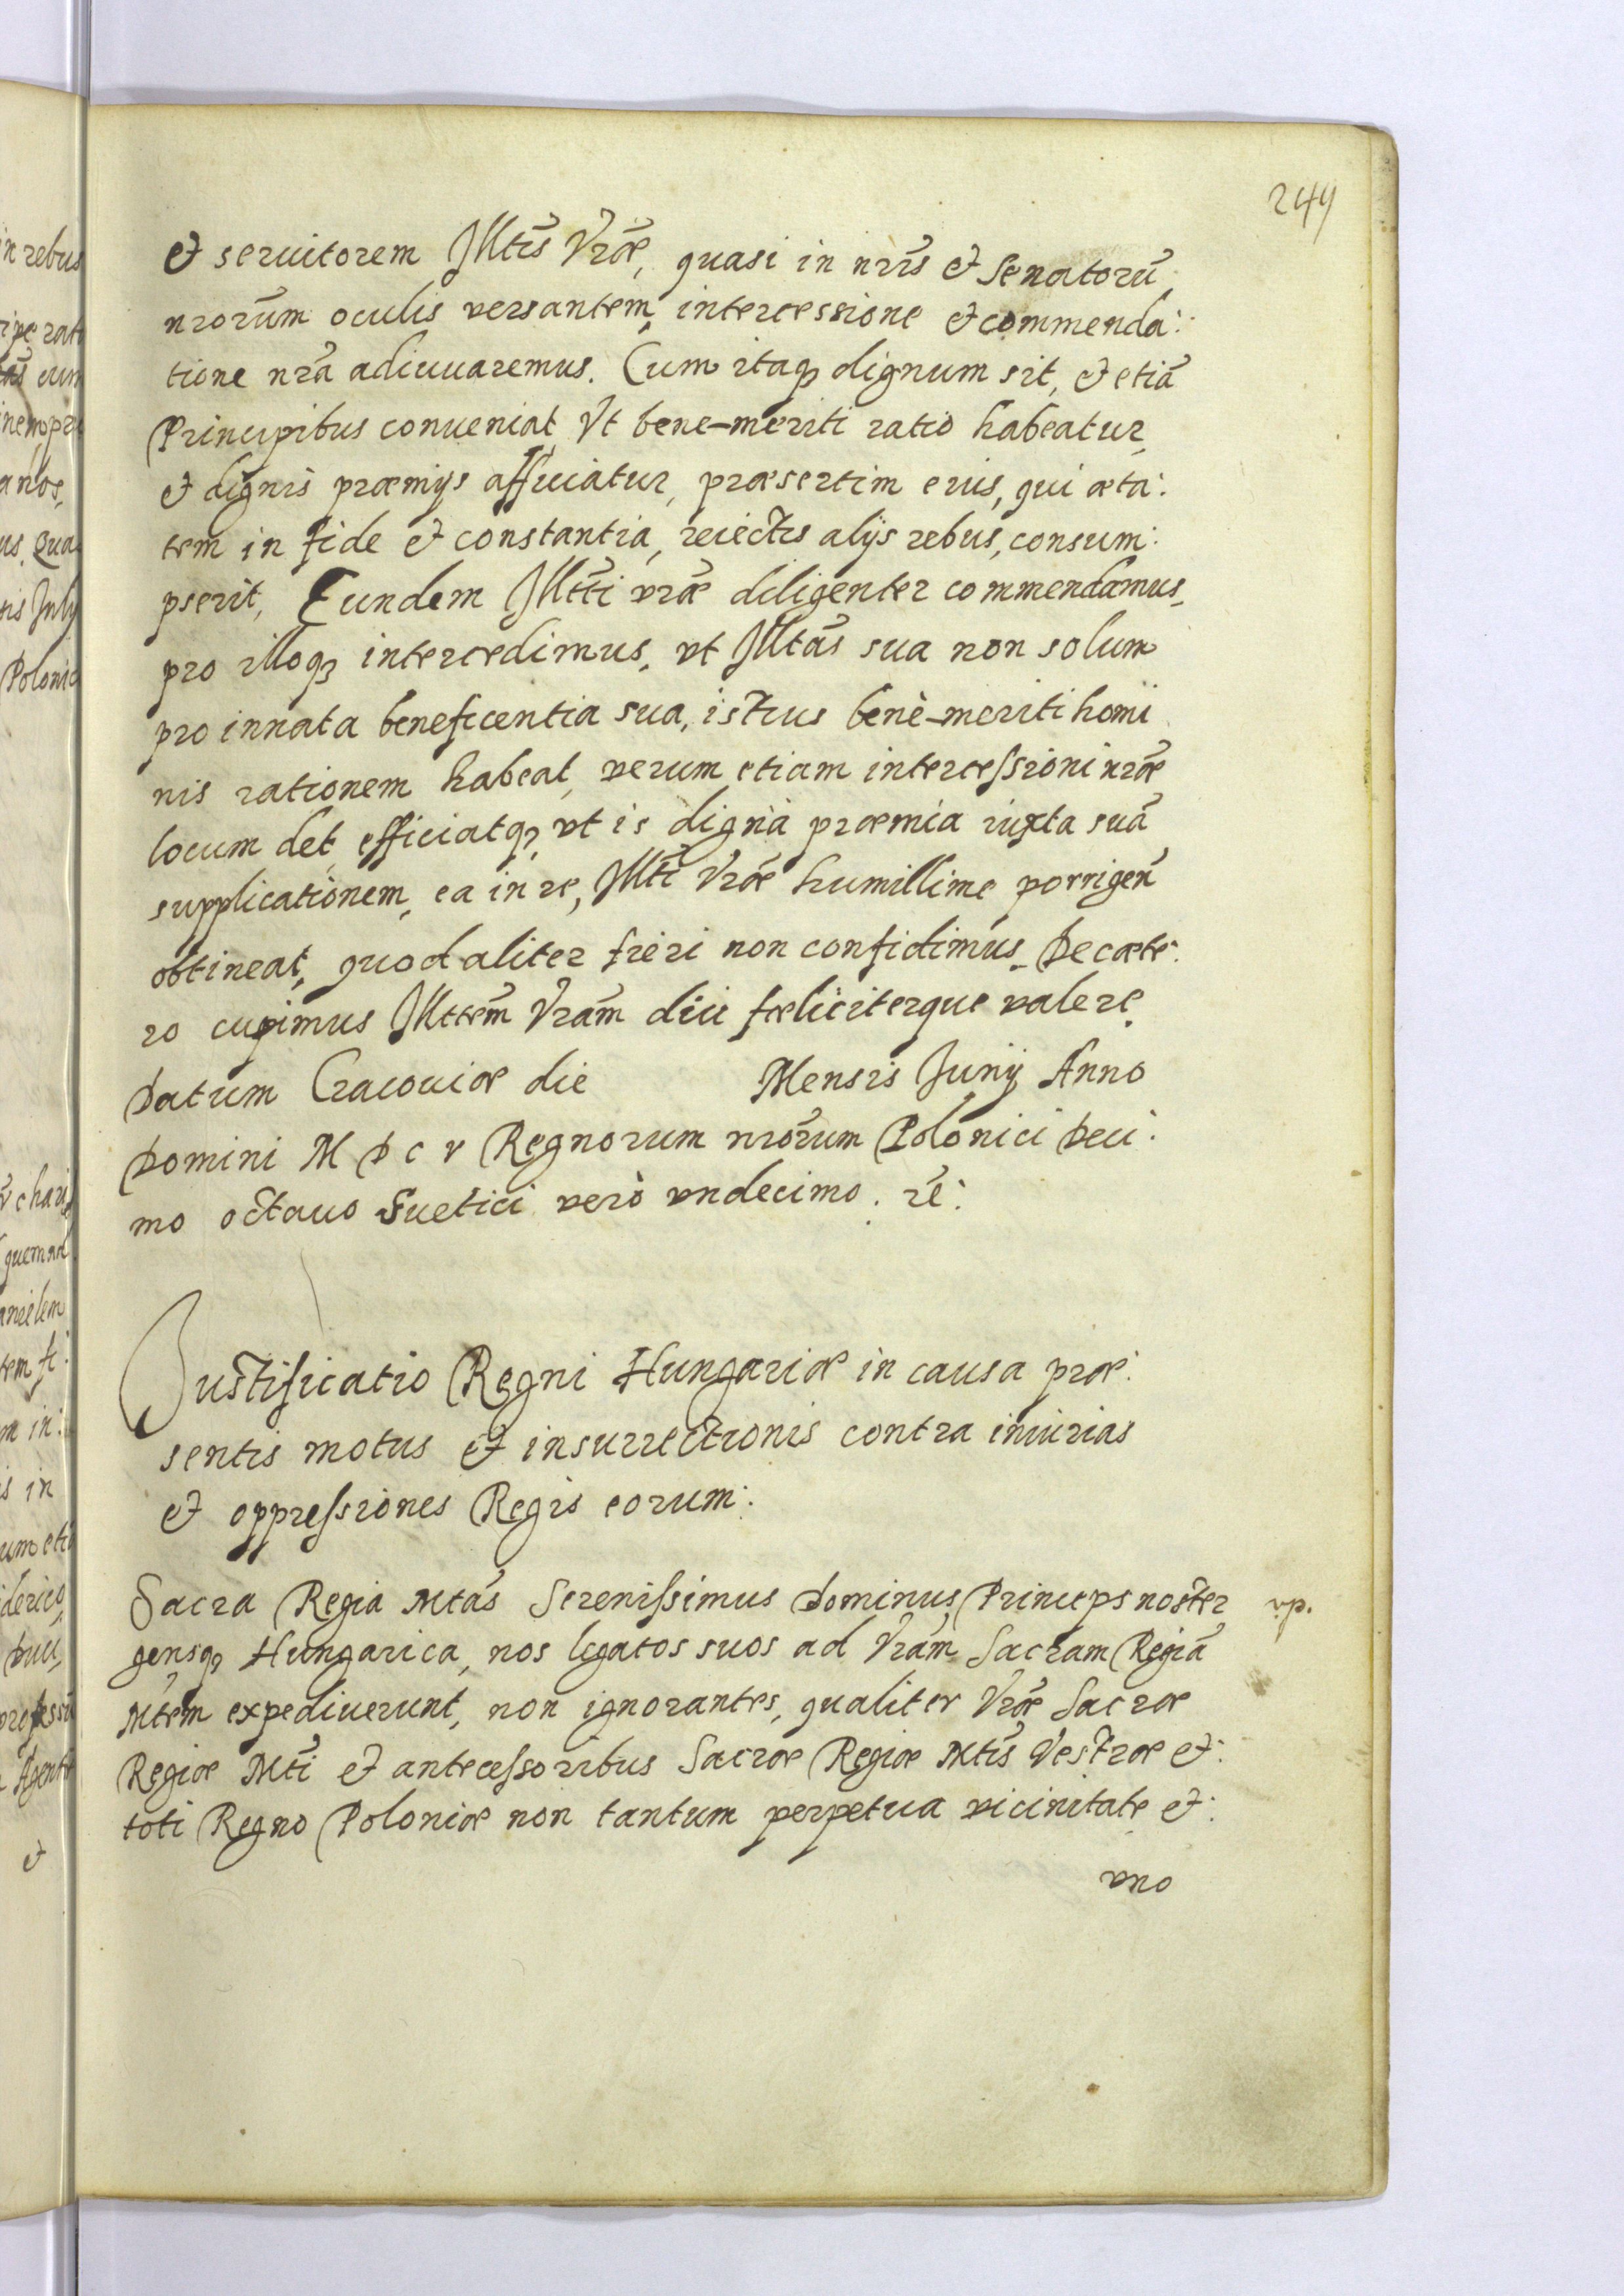 249
et seruitorem Illtis Vræ, quasi in nris et Senatorū
nrorum oculis versantem, intercessione et commenda:
tione nrā adiuuaremus. Cum itaq3 dignum sit, et etiā
Principibus conueniat, Vt bene-meriti ratio habeatur,
et dignis præmijs afficiatur, præsertim eius, qui æta:
tem in fide et constantia, reiectis alijs rebus, consum:
pserit, Eundem Illtti vræ diligenter commendamus,
pro illoq3 intercedimus, vt Illtas sua non solum
pro innata beneficentia sua, istius benè-meriti homi
nis rationem habeat, verum etiam intercessioni nræ
locum det, efficiatq3, vt is digna præmia iuxta suā
supplicationem, ea in re, Illti Vræ humillime porrigen̄
obtineat, quod aliter fieri non confidimus. De cæte:
ro cupimus Illttem Vram diu fæliciterque valere.
Datum Cracouiæ die Mensis Junij Anno
Domini M D C V Regnorum nrorum Polonici Deci:
mo octauo Suetici verò vndecimo. rē:
Justificatio Regni Hungariæ in causa præ:
sentis motus et insurrectionis contra iniurias
et oppressiones Regis eorum:
Sacra Regia Mtas Serenissimus Dominus, Princeps noster
gensq3 Hungarica, nos legatos suos ad Vram Sacram Regiā
Mtem expediuerunt, non ignorantes, qualiter Vræ Sacræ
Regiæ Mti et antecessoribus Sacræ Regiæ Mtis Vestræ et:
toti Regno Poloniæ non tantum perpetua vicinitate et:
vno